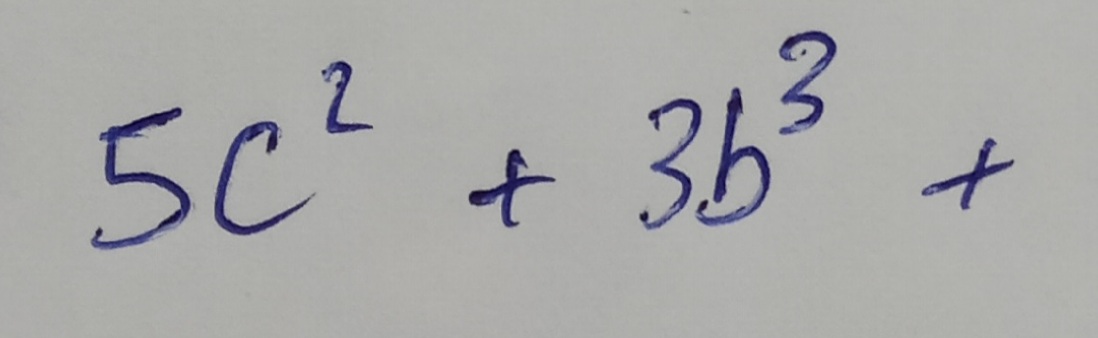 5c² + 3b³ +